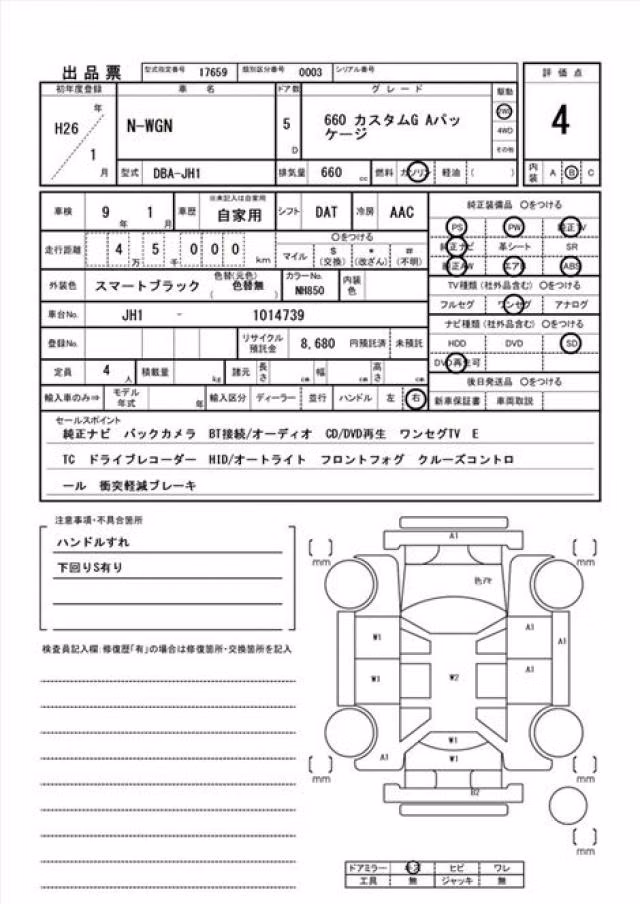 出品票 型式指定番号 17659 類別区分番号 0003 シリアル番号
評価点
初年度登録 車名 ドア数 グレード 駆動
H26 年 1 月
N-WGN
5 D
660 カスタムG Aパッケージ
2WD
4WD
その他
4
型式 DBA-JH1 排気量 660 cc 燃料 ガソリン 軽油 ( )
内装 A B C
車検 9 年 1 月 車歴 ※未記入は自家用 自家用 シフト DAT 冷房 AAC
純正装備品 ○をつける
PS PW 純正TV
純正ナビ 革シート SR
純正AW エアB ABS
走行距離 4 万 5 千 0 0 0 km
○をつける
マイル $ (交換) * (改ざん) # (不明)
外装色 スマートブラック 色替(元色) ( 色替無 ) カラーNo. NH850 内装色
TV種類(社外品含む) ○をつける
フルセグ ワンセグ アナログ
車台No. JH1 - 1014739
ナビ種類(社外品含む) ○をつける
HDD DVD SD
DVD再生可
登録No. リサイクル預託金 8,680 円預託済 未預託
定員 4 人 積載量 kg 諸元 長さ cm 幅 cm 高さ cm
後日発送品 ○をつける
新車保証書 車両取説
輸入車のみ⇒ モデル年式 輸入区分 ディーラー 並行 ハンドル 左 右
セールスポイント
純正ナビ バックカメラ BT接続/オーディオ CD/DVD再生 ワンセグTV E
TC ドライブレコーダー HID/オートライト フロントフォグ クルーズコントロ
ール 衝突軽減ブレーキ
注意事項・不具合箇所
ハンドルすれ
下回りS有り
検査員記入欄:修復歴「有」の場合は修復箇所・交換箇所を記入
A1
[ ] mm
[ ] mm
色アセ
W1
A1
A1
W1
W2
A1
W1
A1
W1
[ ] mm
[ ] mm
B2
[ ] mm
ドアミラー キズ ヒビ ワレ
工具 無 ジャッキ 無